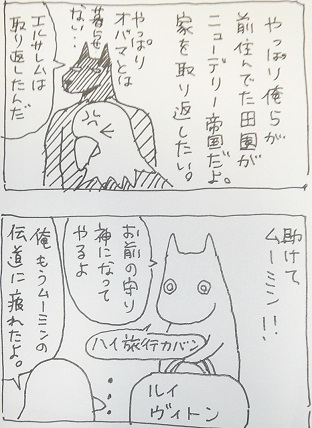 やっぱり俺らが
前住んでた田園が
ニューデリー帝国だよ。
家を取り返したい。
やっぱり
オバマとは
暮らせ
ない…
エルサレムは
取り返したんだ
助けて
ムーミン!!
お前の守り
神になって
やるよ
ハイ旅行カバン
ルイ
ヴィトン
俺もうムーミンの
伝道に疲れたよ。